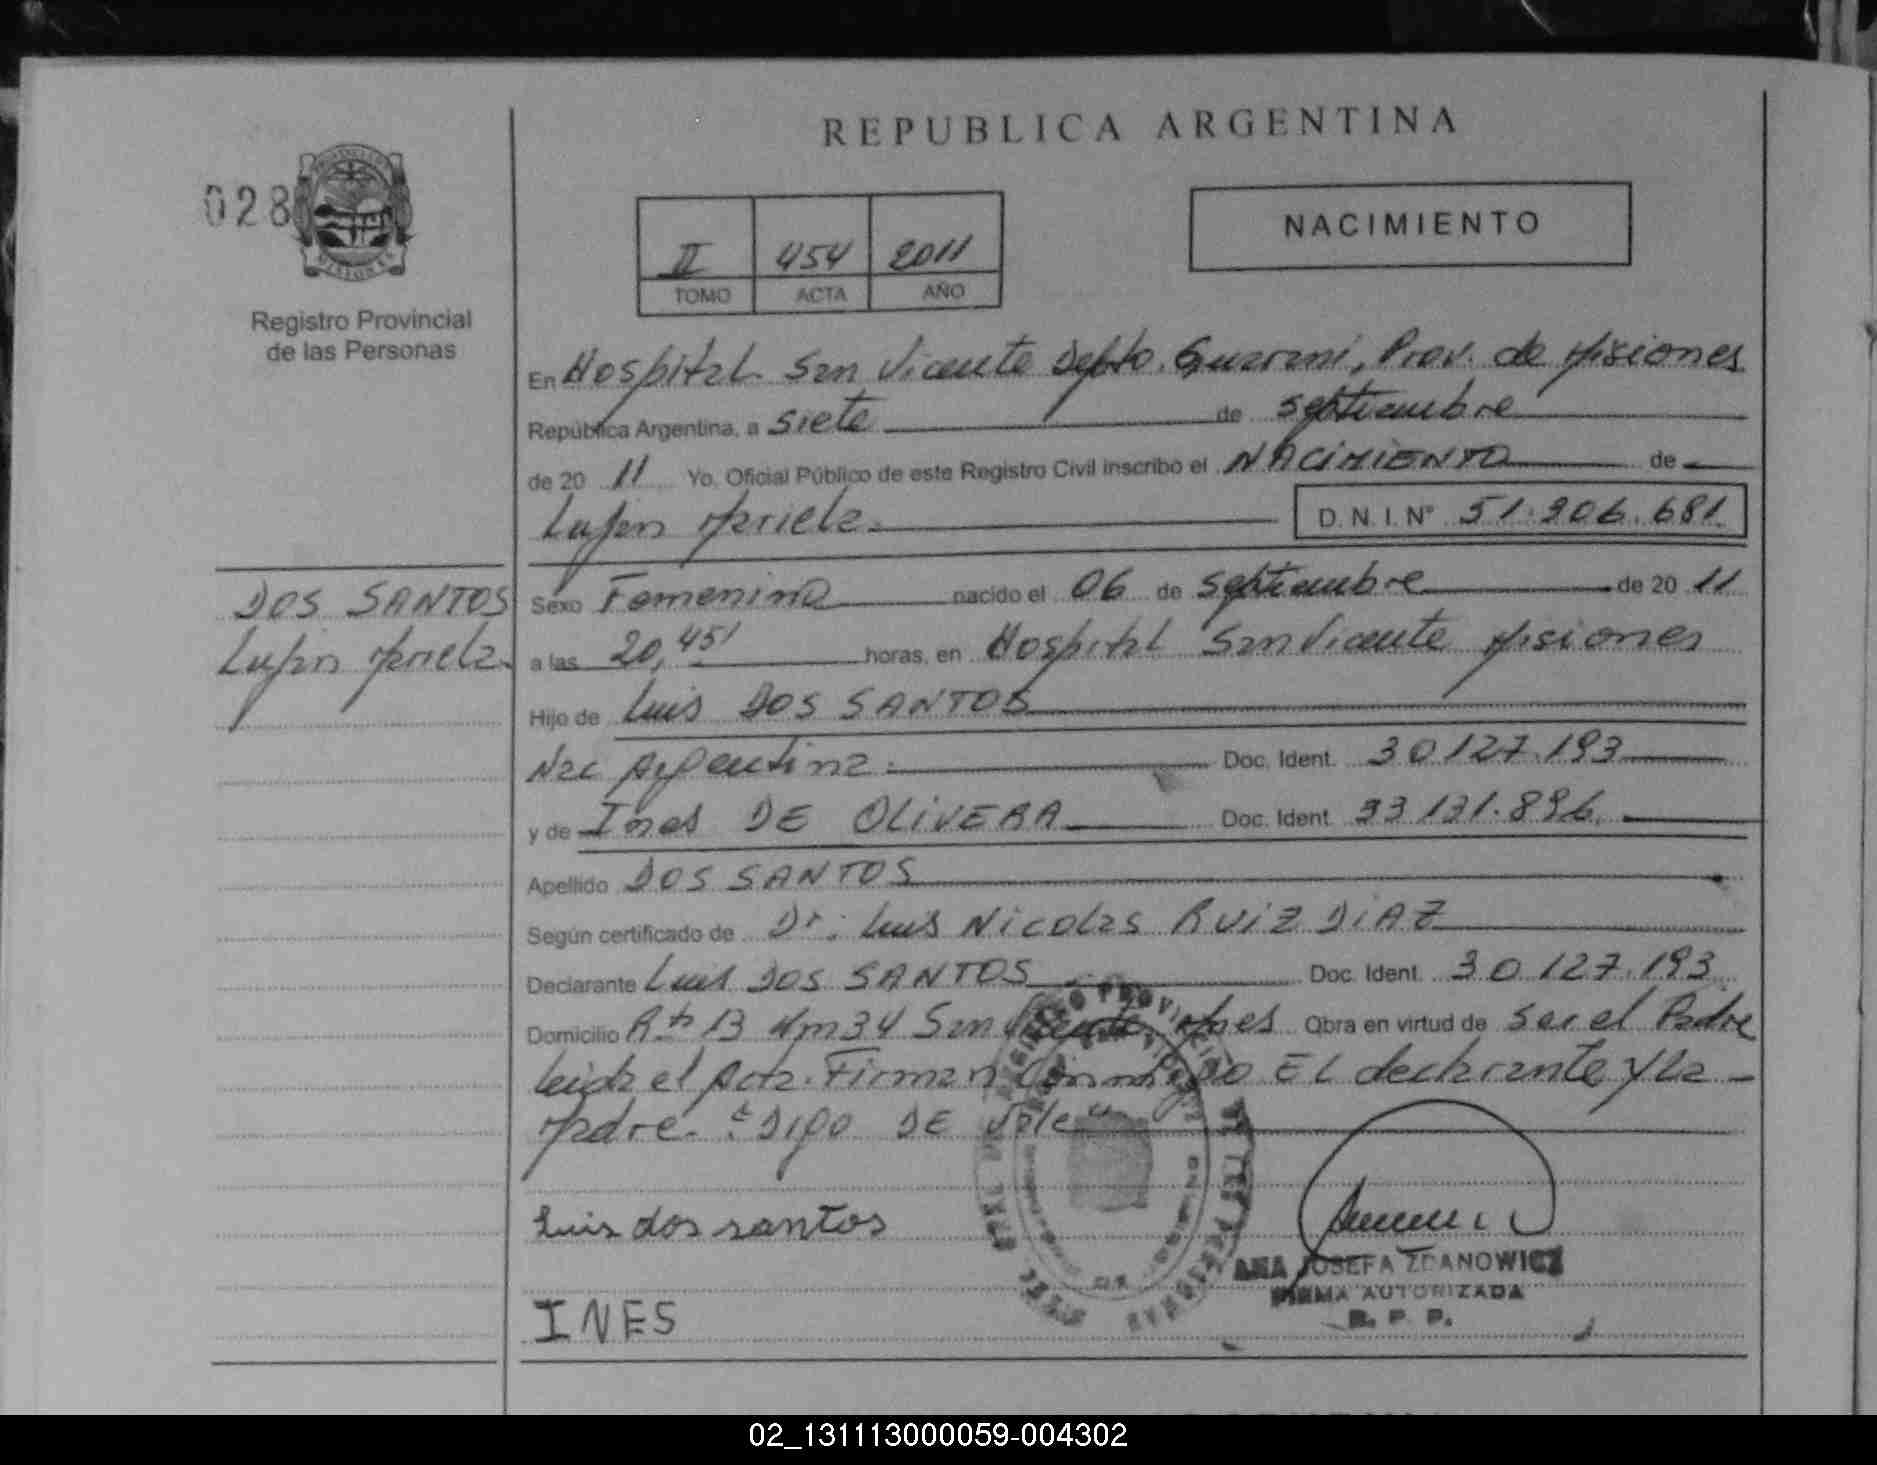 REPUBLICA ARGENTINA
028
Registro Provincial
de las Personas
II 454 2011
TOMO ACTA AÑO
NACIMIENTO
En Hospital San Vicente Depto. Guarani, Prov. de Misiones
República Argentina, a siete de septiembre
de 20 11 Yo, Oficial Público de este Registro Civil inscribo el NACIMIENTO de
Mariela
D.N.I. Nº 51.306.681
DOS SANTOS
Mariela
Sexo Femenino nacido el 06 de septiembre de 20 11
a las 20,45' horas, en Hospital San Vicente Misiones
Hijo de Luis DOS SANTOS
Nac Argentina Doc. Ident. 30 127.193
y de Ines DE OLIVERA Doc. Ident. 33 131.896.
Apellido DOS SANTOS
Según certificado de Dr. Luis Nicolas RUIZ DIAZ
Declarante Luis DOS SANTOS Doc. Ident. 30 127.193
Domicilio Rta 13 Km 34 San Vicente Mnes Obra en virtud de ser el Padre
leida el Acta. Firman Conmigo EL declarante y la
Madre. "DIGO DE Vale"
Luis dos santos
INES
ANA JOSEFA ZDANOWICZ
FIRMA AUTORIZADA
R. P. P.
02_131113000059-004302